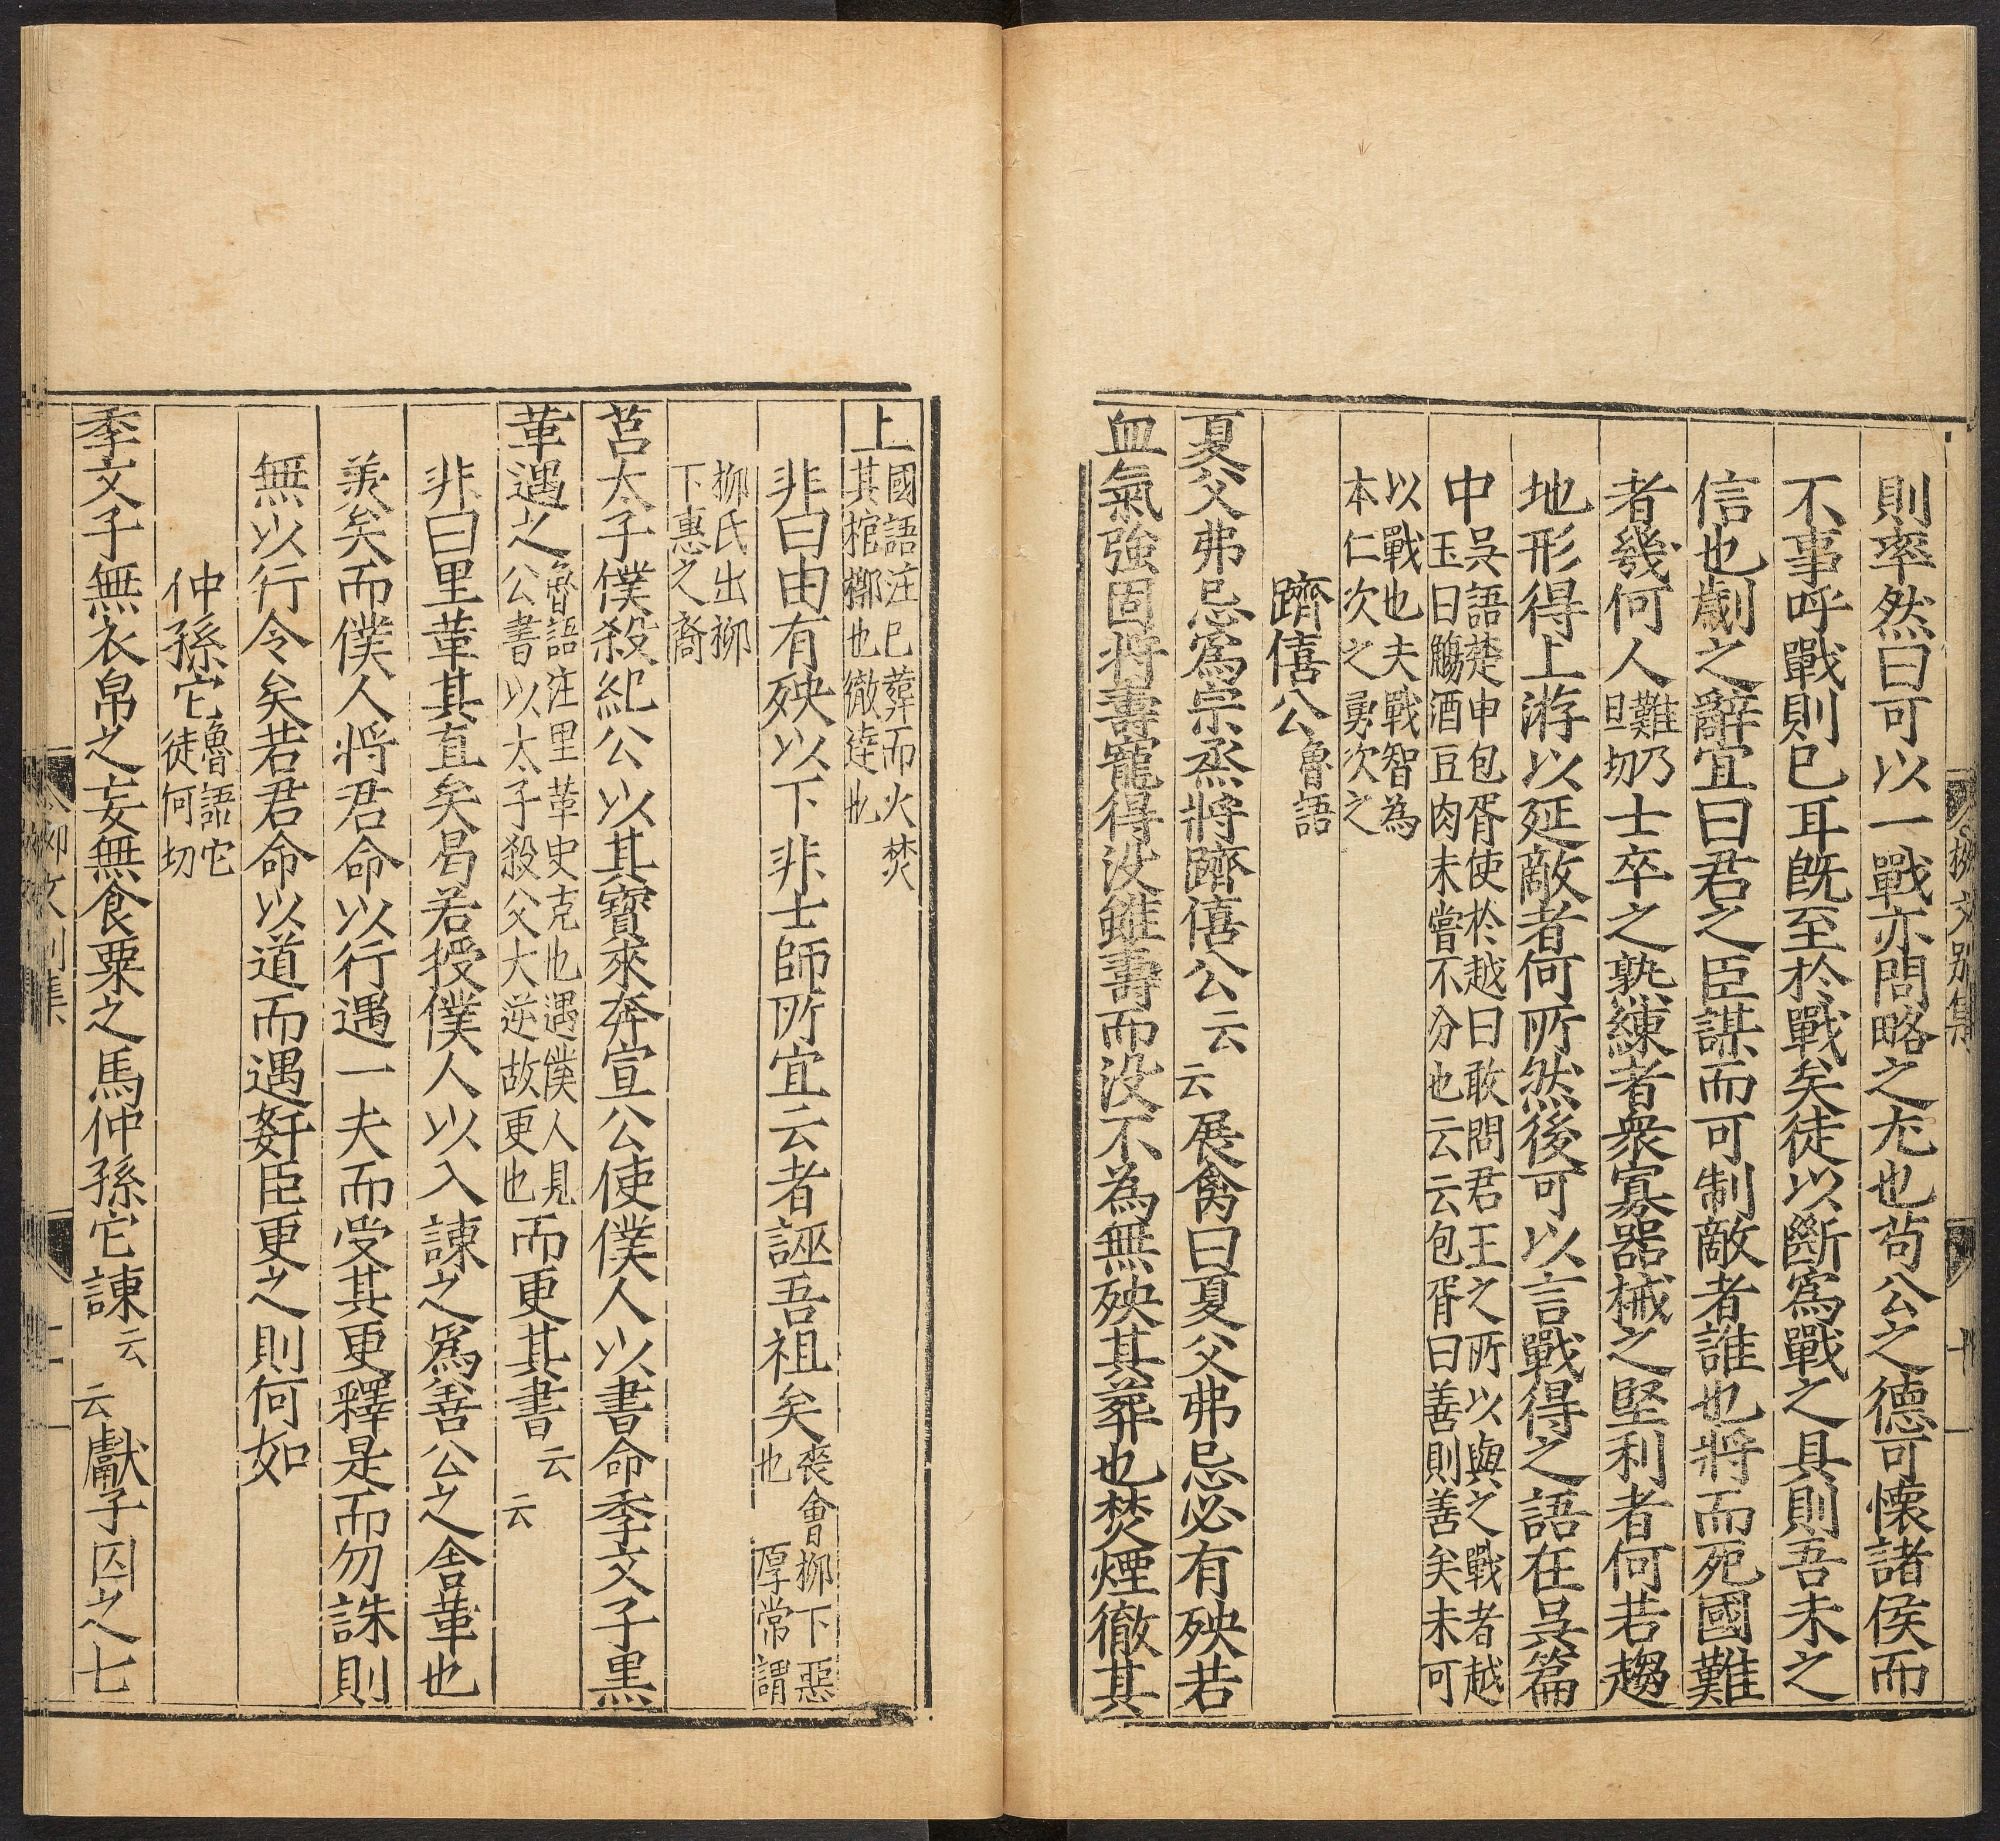 則率然曰可以一戰亦問略之尤也苟公之德可懷諸侯而
不事呼戰則已耳旣至於戰矣徒以斷爲戰之具則吾未之
信也劌之辭宜曰君之臣謀而可制敵者誰也將而死國難
者幾何人難乃旦切士卒之孰練者衆寡器械之堅利者何若趨
地形得上游以延敵者何所然後可以言戰得之語在吳篇
中吳語楚申包胥使於越曰敢問君王之所以與之戰者越王曰觴酒豆肉未嘗不分也云云包胥曰善則善矣未可
以戰也夫戰智為本仁次之勇次之
躋僖公魯語
夏父弗忌爲宗烝將躋僖公云云展禽曰夏父弗忌必有殃若
血氣強固將壽寵得沒雖壽而沒不為無殃其葬也焚煙徹其
上國語注已葬而火焚其棺槨也徹達也
非曰由有殃以下非士師所宜云者誣吾祖矣喪會柳下惡也 厚常謂
柳氏出柳下惠之裔
莒太子僕殺紀公以其寶來奔宣公使僕人以書命季文子里
革遇之魯語注里革史克也遇僕人見公書以太子殺父大逆故更也而更其書云云
非曰里革其直矣曷若授僕人以入諫之爲善公之舍革也
羙矣而僕人將君命以行遇一夫而受其更釋是而勿誅則
無以行令矣若君命以道而遇姧臣更之則何如
仲孫它魯語它徒何切
季文子無衣帛之妾無食粟之馬仲孫它諫云云獻子囚之七
柳文別集
柳文別集